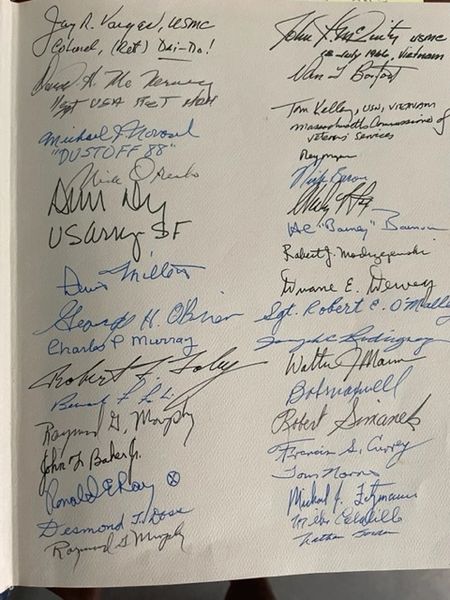 Jay R. Vargas, USMC
Colonel, (Ret) Dai-Do!
David H. McNerney
USA RET MOH
Michael J Novosel
"DUSTOFF 88"
Drew Dix
US Army SF
Millett
George H. O'Brien
Charles P Murray
Robert F. Foley
Raymond G. Murphy
John F. Baker Jr.
Ronald E Ray
Desmond T. Doss
Raymond G Murphy
John J. McGinty USMC
18 July 1966, Vietnam
Van T Barfoot
Tom Kelley, USN, VIETNAM
Massachusetts Commissioner of
Veterans Services
"Barney" Barnum
Robert J. Modrzejewski
Duane E. Dewey
Sgt. Robert E. O'Malley
Joseph C Rodriguez
Walter J Marm
Bob Maxwell
Robert Simanek
Francis S. Currey
Tom Norris
Michael J. Fitzmaurice
Mike Colalillo
Nathan Gordon